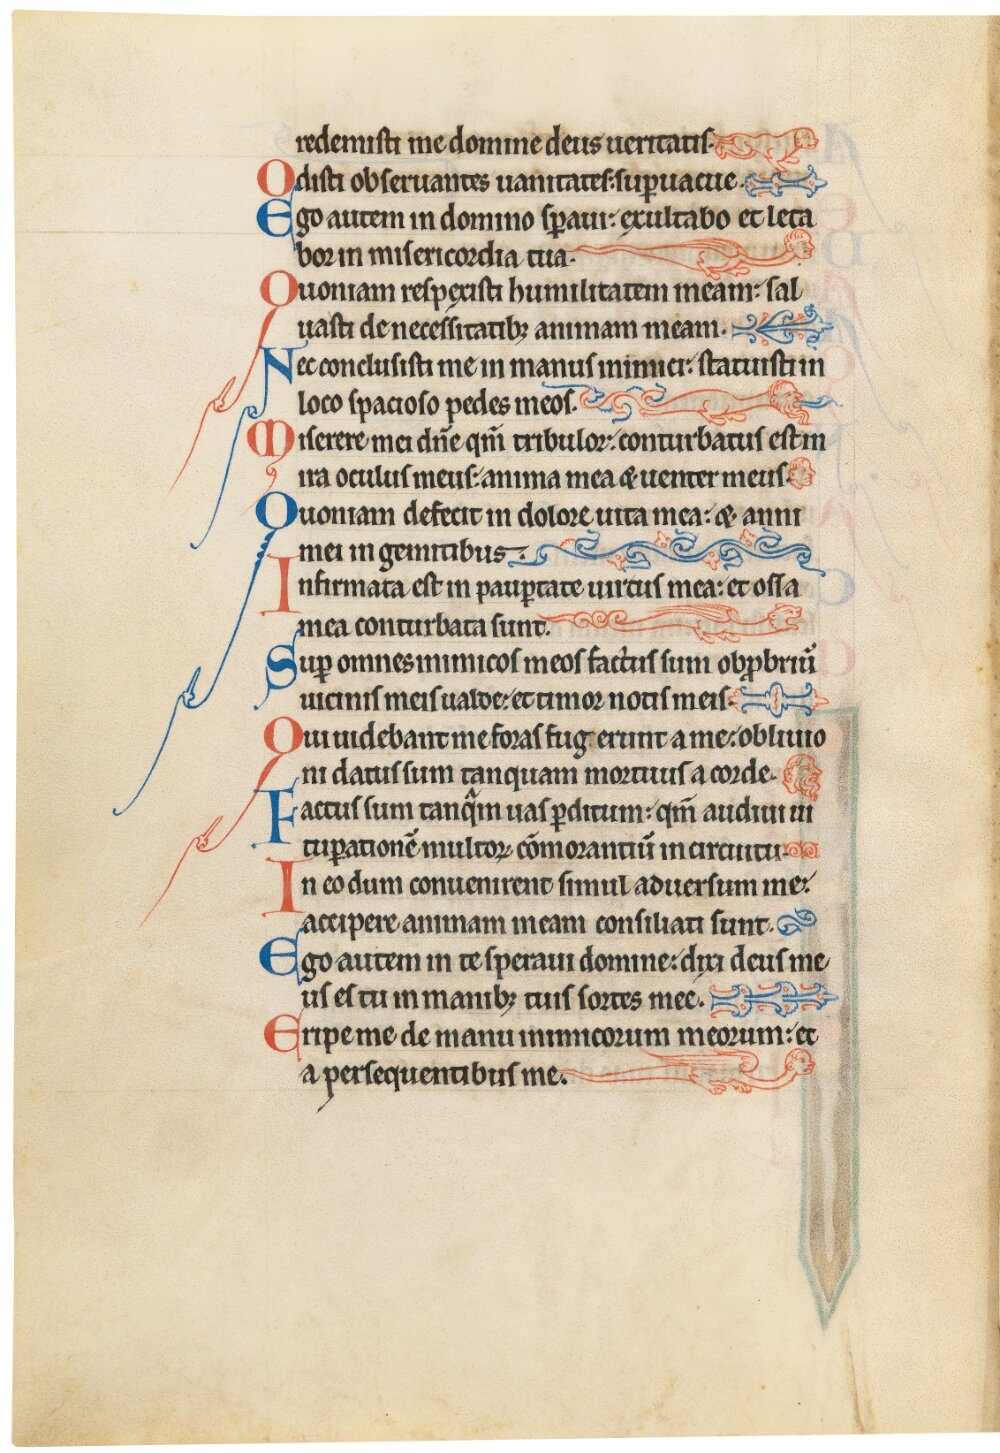 redemisti me domine deus ueritatis.
Odisti obseruantes uanitates: sup̱uacue.
Ego autem in domino sp̱aui: exultabo et leta
bor in misericordia tua.
Quoniam respexisti humilitatem meam: sal
uasti de necessitatibꝫ animam meam.
Nec conclusisti me in manus inimici: statuisti in
loco spacioso pedes meos.
Miserere mei dn̄e qm̄ tribulor: conturbatus est in
ira oculus meus: anima mea & uenter meus.
Quoniam defecit in dolore uita mea: & anni
mei in gemitibus.
Infirmata est in paup̱tate uirtus mea: et ossa
mea conturbata sunt.
Sup̱ omnes inimicos meos factus sum obꝓbriū
uicinis meis ualde: et timor notis meis.
Qui uidebant me foras fugerunt a me: obliuio
ni datus sum tanquam mortuus a corde.
Factus sum tanq̄m uas p̱ditum: qm̄ audiui ui
tup̱ationē multoꝝ cōmorantiū in circuitu.
In eo dum conuenirent simul aduersum me:
accipere animam meam consiliati sunt.
Ego autem in te speraui domine: dixi deus me
us es tu in manibꝫ tuis sortes mee.
Eripe me de manu inimicorum meorum: et
a persequentibus me.